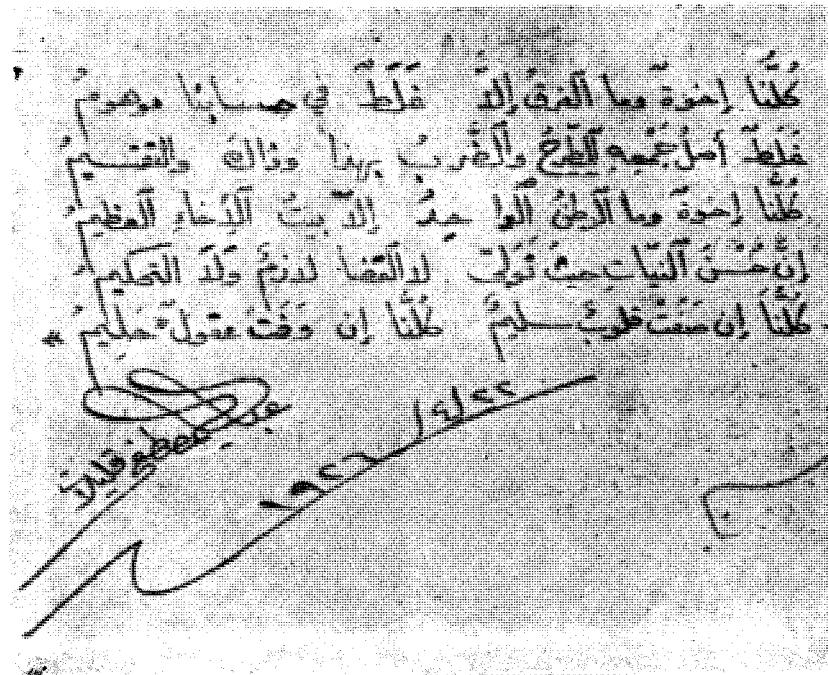 كُلُّنا إخوةٌ وما الفرقُ إلاّ غَلَطٌ في حسابنا موهومُ
غَلَطٌ أصلُ جَمْعِهِ الطَّرحُ والضَّربُ بهذا وذاكَ والتقسيمُ
كُلُّنا إخوةٌ وما الوطنُ الواحدُ إلاّ بيتُ الإخاءِ العظيمُ
إنَّ حُسْنَ النيّاتِ حيثُ تَولّى لا القضا لازمٌ ولا التحكيمُ
كُلُّنا إن صَفَتْ قلوبٌ سليمٌ كُلُّنا إن وَفَتْ عقولٌ حليمُ
قليلات
١٩٢٦/٤/٢٢